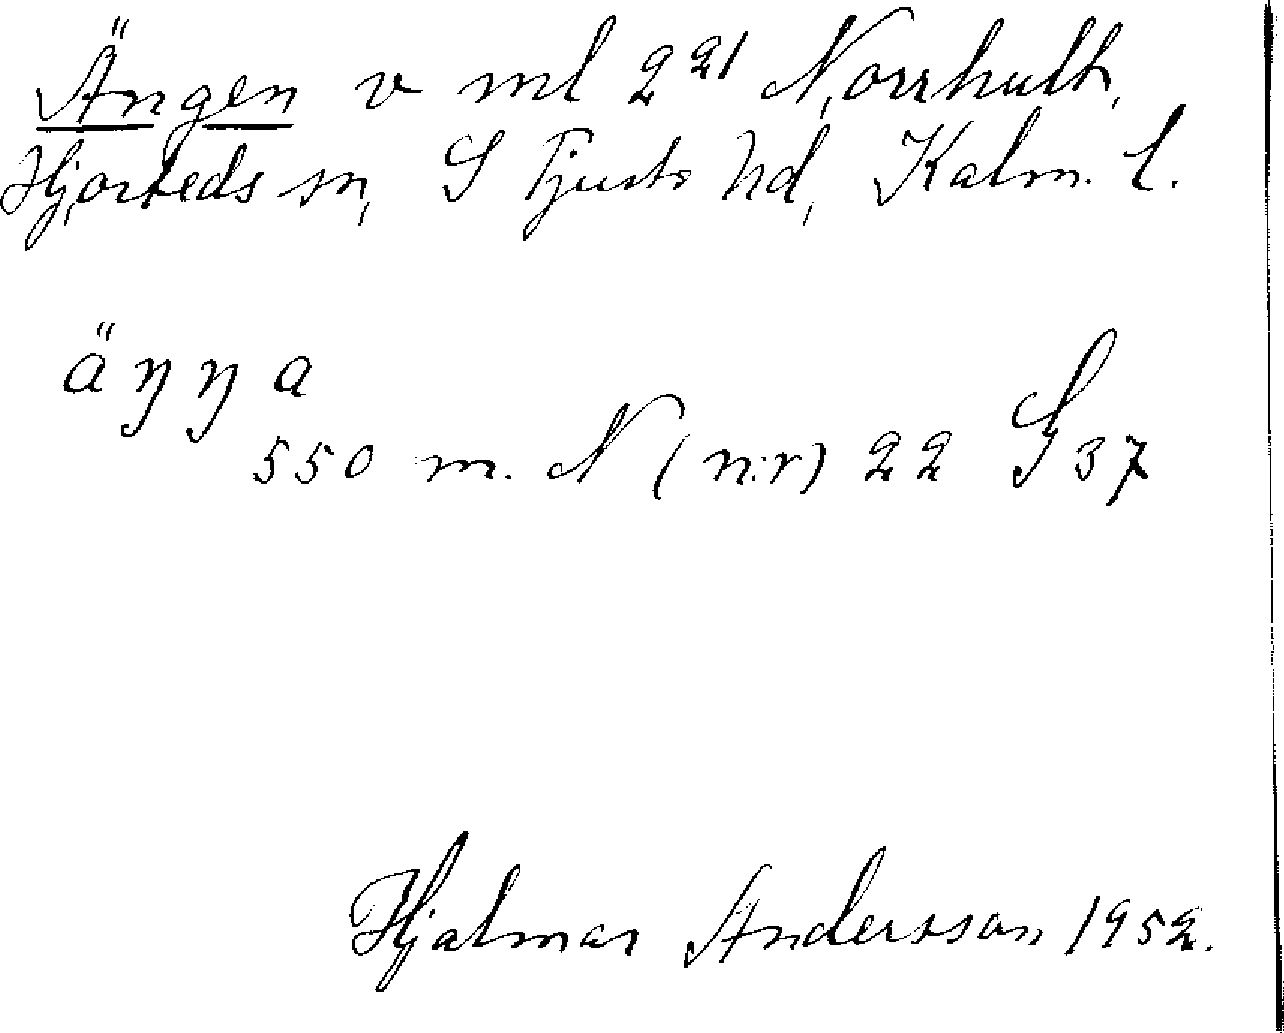 Ängen v ml 2²¹ Norrhult,
Hjorteds sn, S Tjusts hd, Kalm. l.
äŋŋa
550 m. N (n:r) 22 S 37
Hjalmar Andersson 1952.